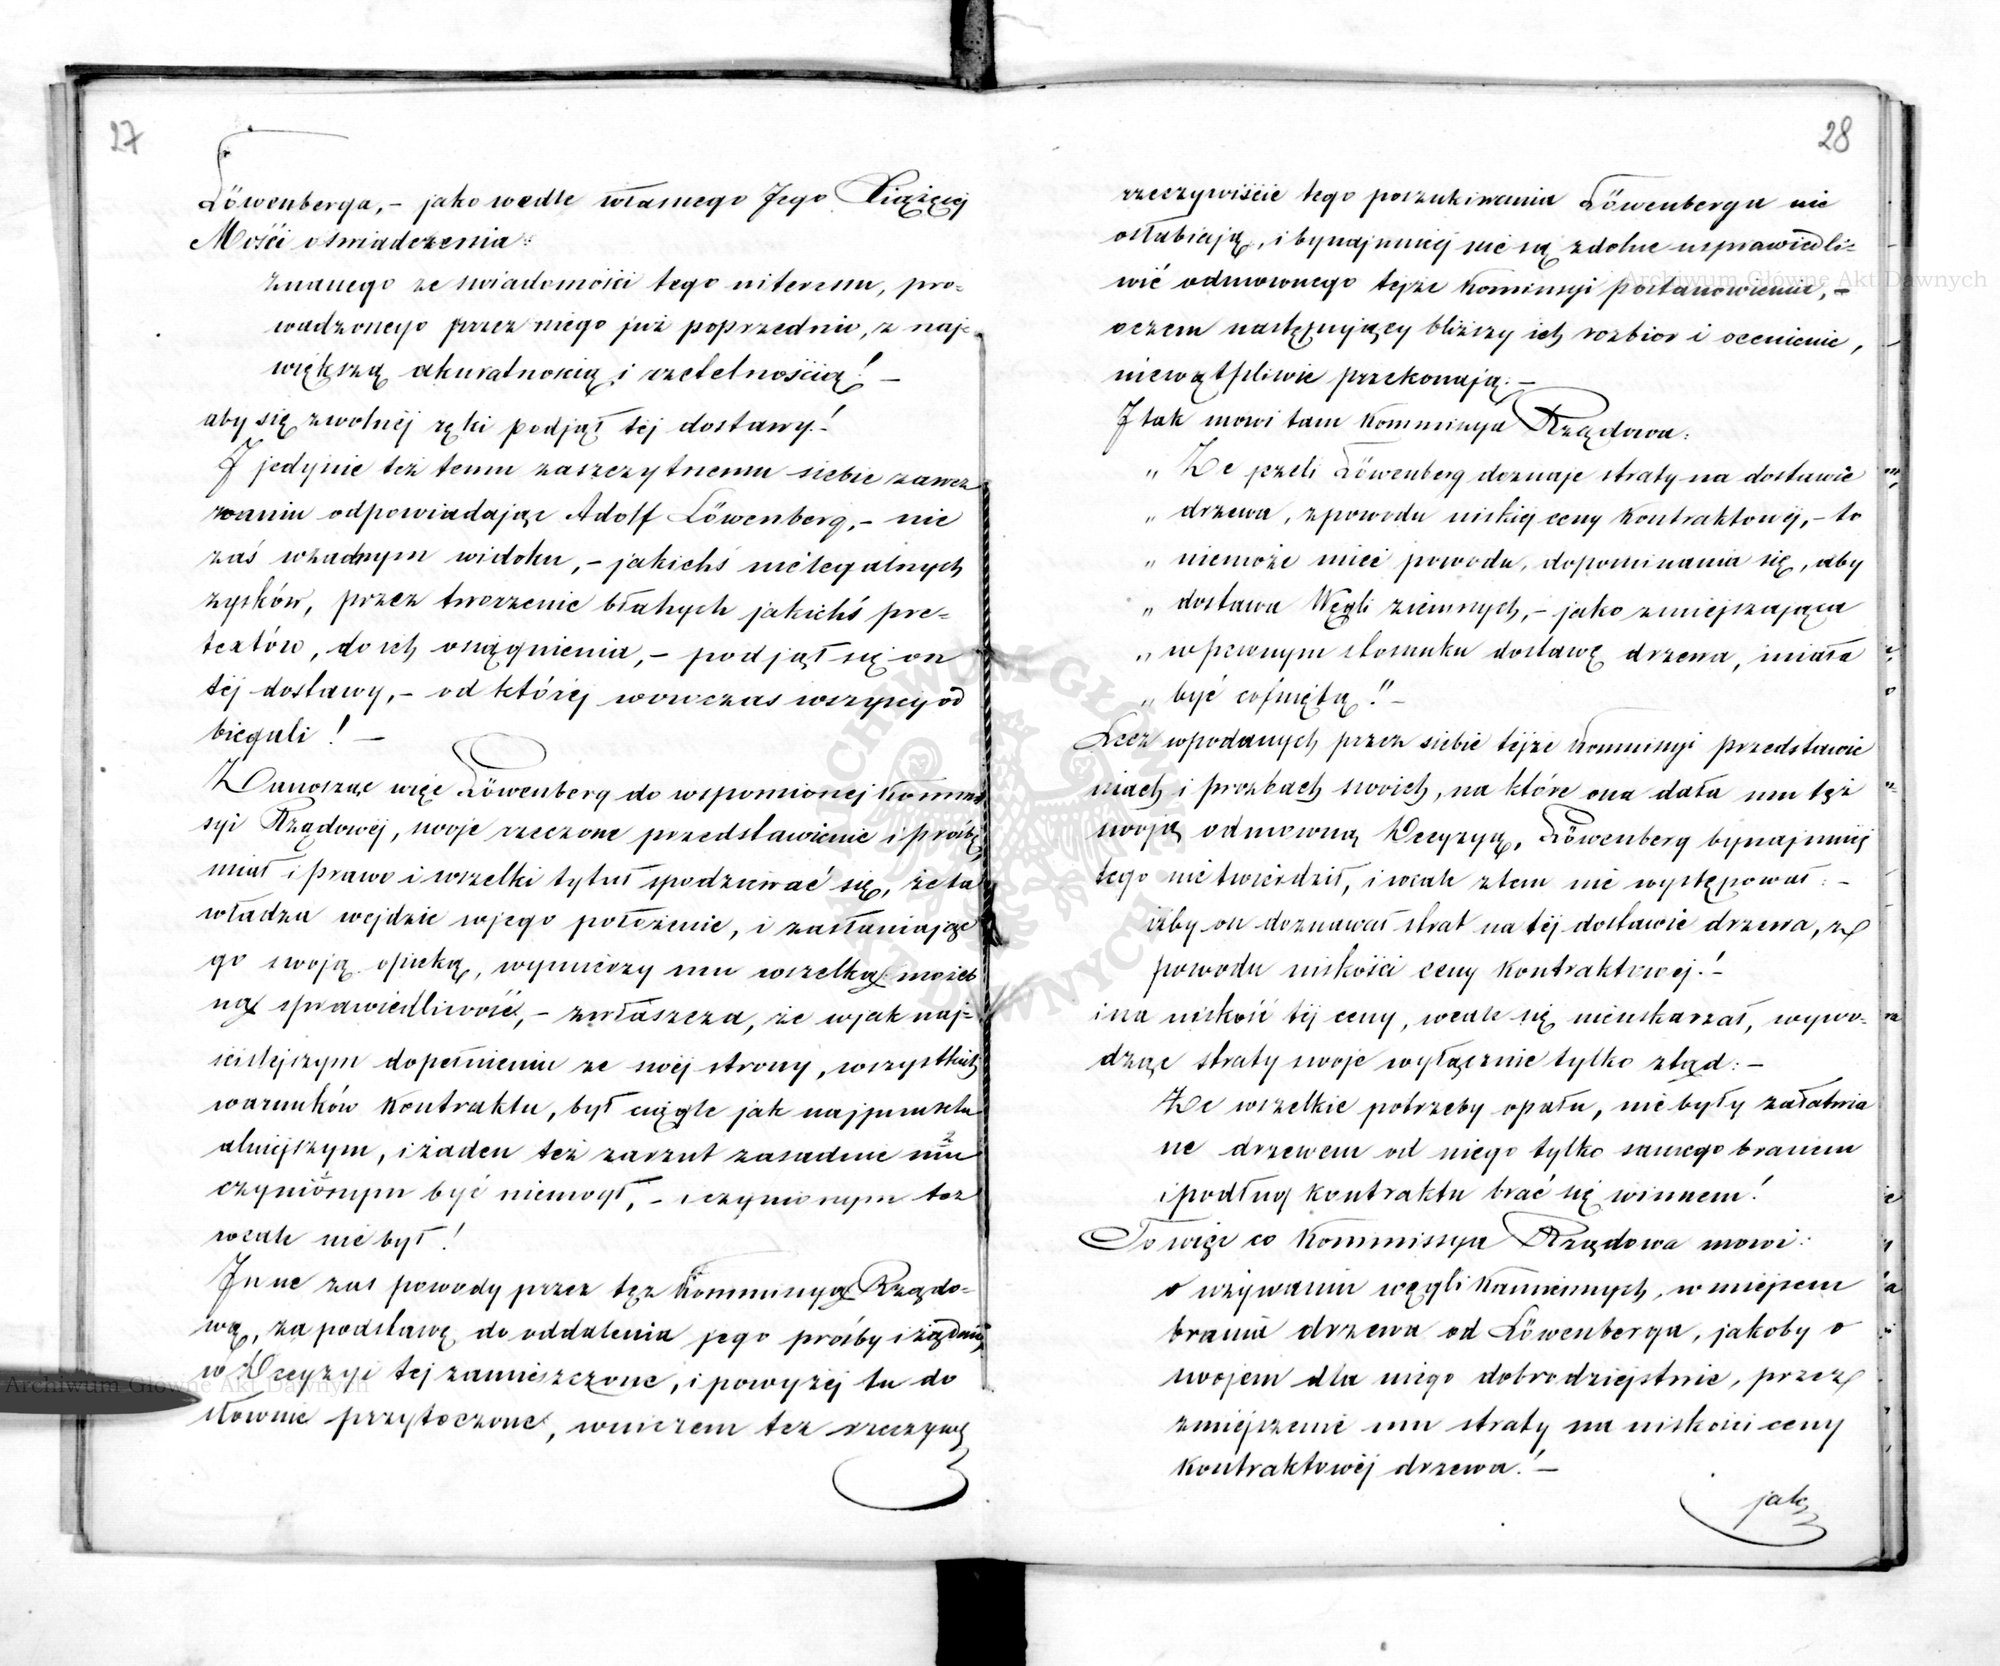 27
Löwenberga, – jako wedle własnego Jego Xiążęcej
Mości oświadczenia:
znanego ze świadomości tego interessu, pro=
wadzonego przez niego już poprzednio, z naj=
większą akuratnością i rzetelnością! –
aby się zwolnéj ręki podjął téj dostawy!
I jedynie też temu zaszczytnemu siebie zawez
waniu odpowiadając Adolf Löwenberg, – nie
zaś wżadnym widoku, – jakichś nielegalnych
zysków, przez tworzenie błahych jakichś pre=
textów, do ich osiągnienia, – podjął się on
téj dostawy, – od któréj wowczas wszyscy od
biegali! –
Zanosząc więc Löwenberg do wspomionej Kommis
syi Rządowéj, swoje rzeczone przedstawienie i prośbę
miał i prawo i wszelki tytuł spodziewać się, że ta
władza wejdzie wjego położenie, i zasłaniając
go swoją opieką, wymierzy mu wszelką możeb
ną sprawiedliwość, – zwłaszcza, że wjak naj=
ściślejszym dopełnieniu ze swéj strony, wszystkich
warunków Kontraktu, był ciągle jak najpunktu
alniejszym, i żaden też zarzut zasadnie mu
czynionym być niemogł, – i czynionym też
wcale nie był!
Inne zas powody przez tęż Kommissyą Rządo=
wą, za podstawę do oddalenia jego prośby i żądania
w Decyzyi tej zamieszczone, i powyzéj tu do
słownie przytoczone, wniczem też rzeczywi
28
rzeczywiście tego poszukiwania Löwenberga nie
osłabiają, i bynajmniéj nie są zdolne usprawiedli=
wić odmownego tejże Kommissyi postanowienia, –
oczem następujący bliższy ich rozbior i ocenienie,
niewątpliwie przekonają: –
I tak mowi tam Kommissya Rządowa:
„ Że jeżeli Löwenberg doznaje straty na dostawie
„ drzewa, zpowodu niskiéj ceny Kontraktowéj, – to
„ niemoże mieć powodu, dopominania się, aby
„ dostawa Węgli ziemnych, – jako zmniejszająca
„ w pewnym stosunku dostawę drzewa, miała
„ być cofniętą!" –
Lecz wpodanych przez siebie téjże Kommissyi przedstawie
niach i prozbach swoich, na które ona dała mu tęż
swoją odmowną Decyzyą, Löwenberg bynajmniéj
tego nie twierdził, i wcale ztem nie występował: –
iżby on doznawał strat na téj dostawie drzewa, z
powodu niskości ceny Kontraktowej! –
i na niskość téj ceny, wcale się nieuskarżał, wywo=
dząc straty swoje wyłącznie tylko ztąd: –
Że wszelkie potrzeby opału, nie były załatwia
ne drzewem od niego tylko samego branem
i podług Kontraktu brać się winnem!
To więc co Kommissya Rządowa mowi:
o używaniu węgli Kamiennych, w miejscu
brania drzewa od Löwenberga, jakoby o
swojem dla niego dobrodziejstwie, przez
zmniejszenie mu straty na niskości ceny
Kontraktowéj drzewa! –
jak
Archiwum Główne Akt Dawnych
Archiwum Główne Akt Dawnych
ARCHIWUM GŁÓWNE AKT DAWNYCH